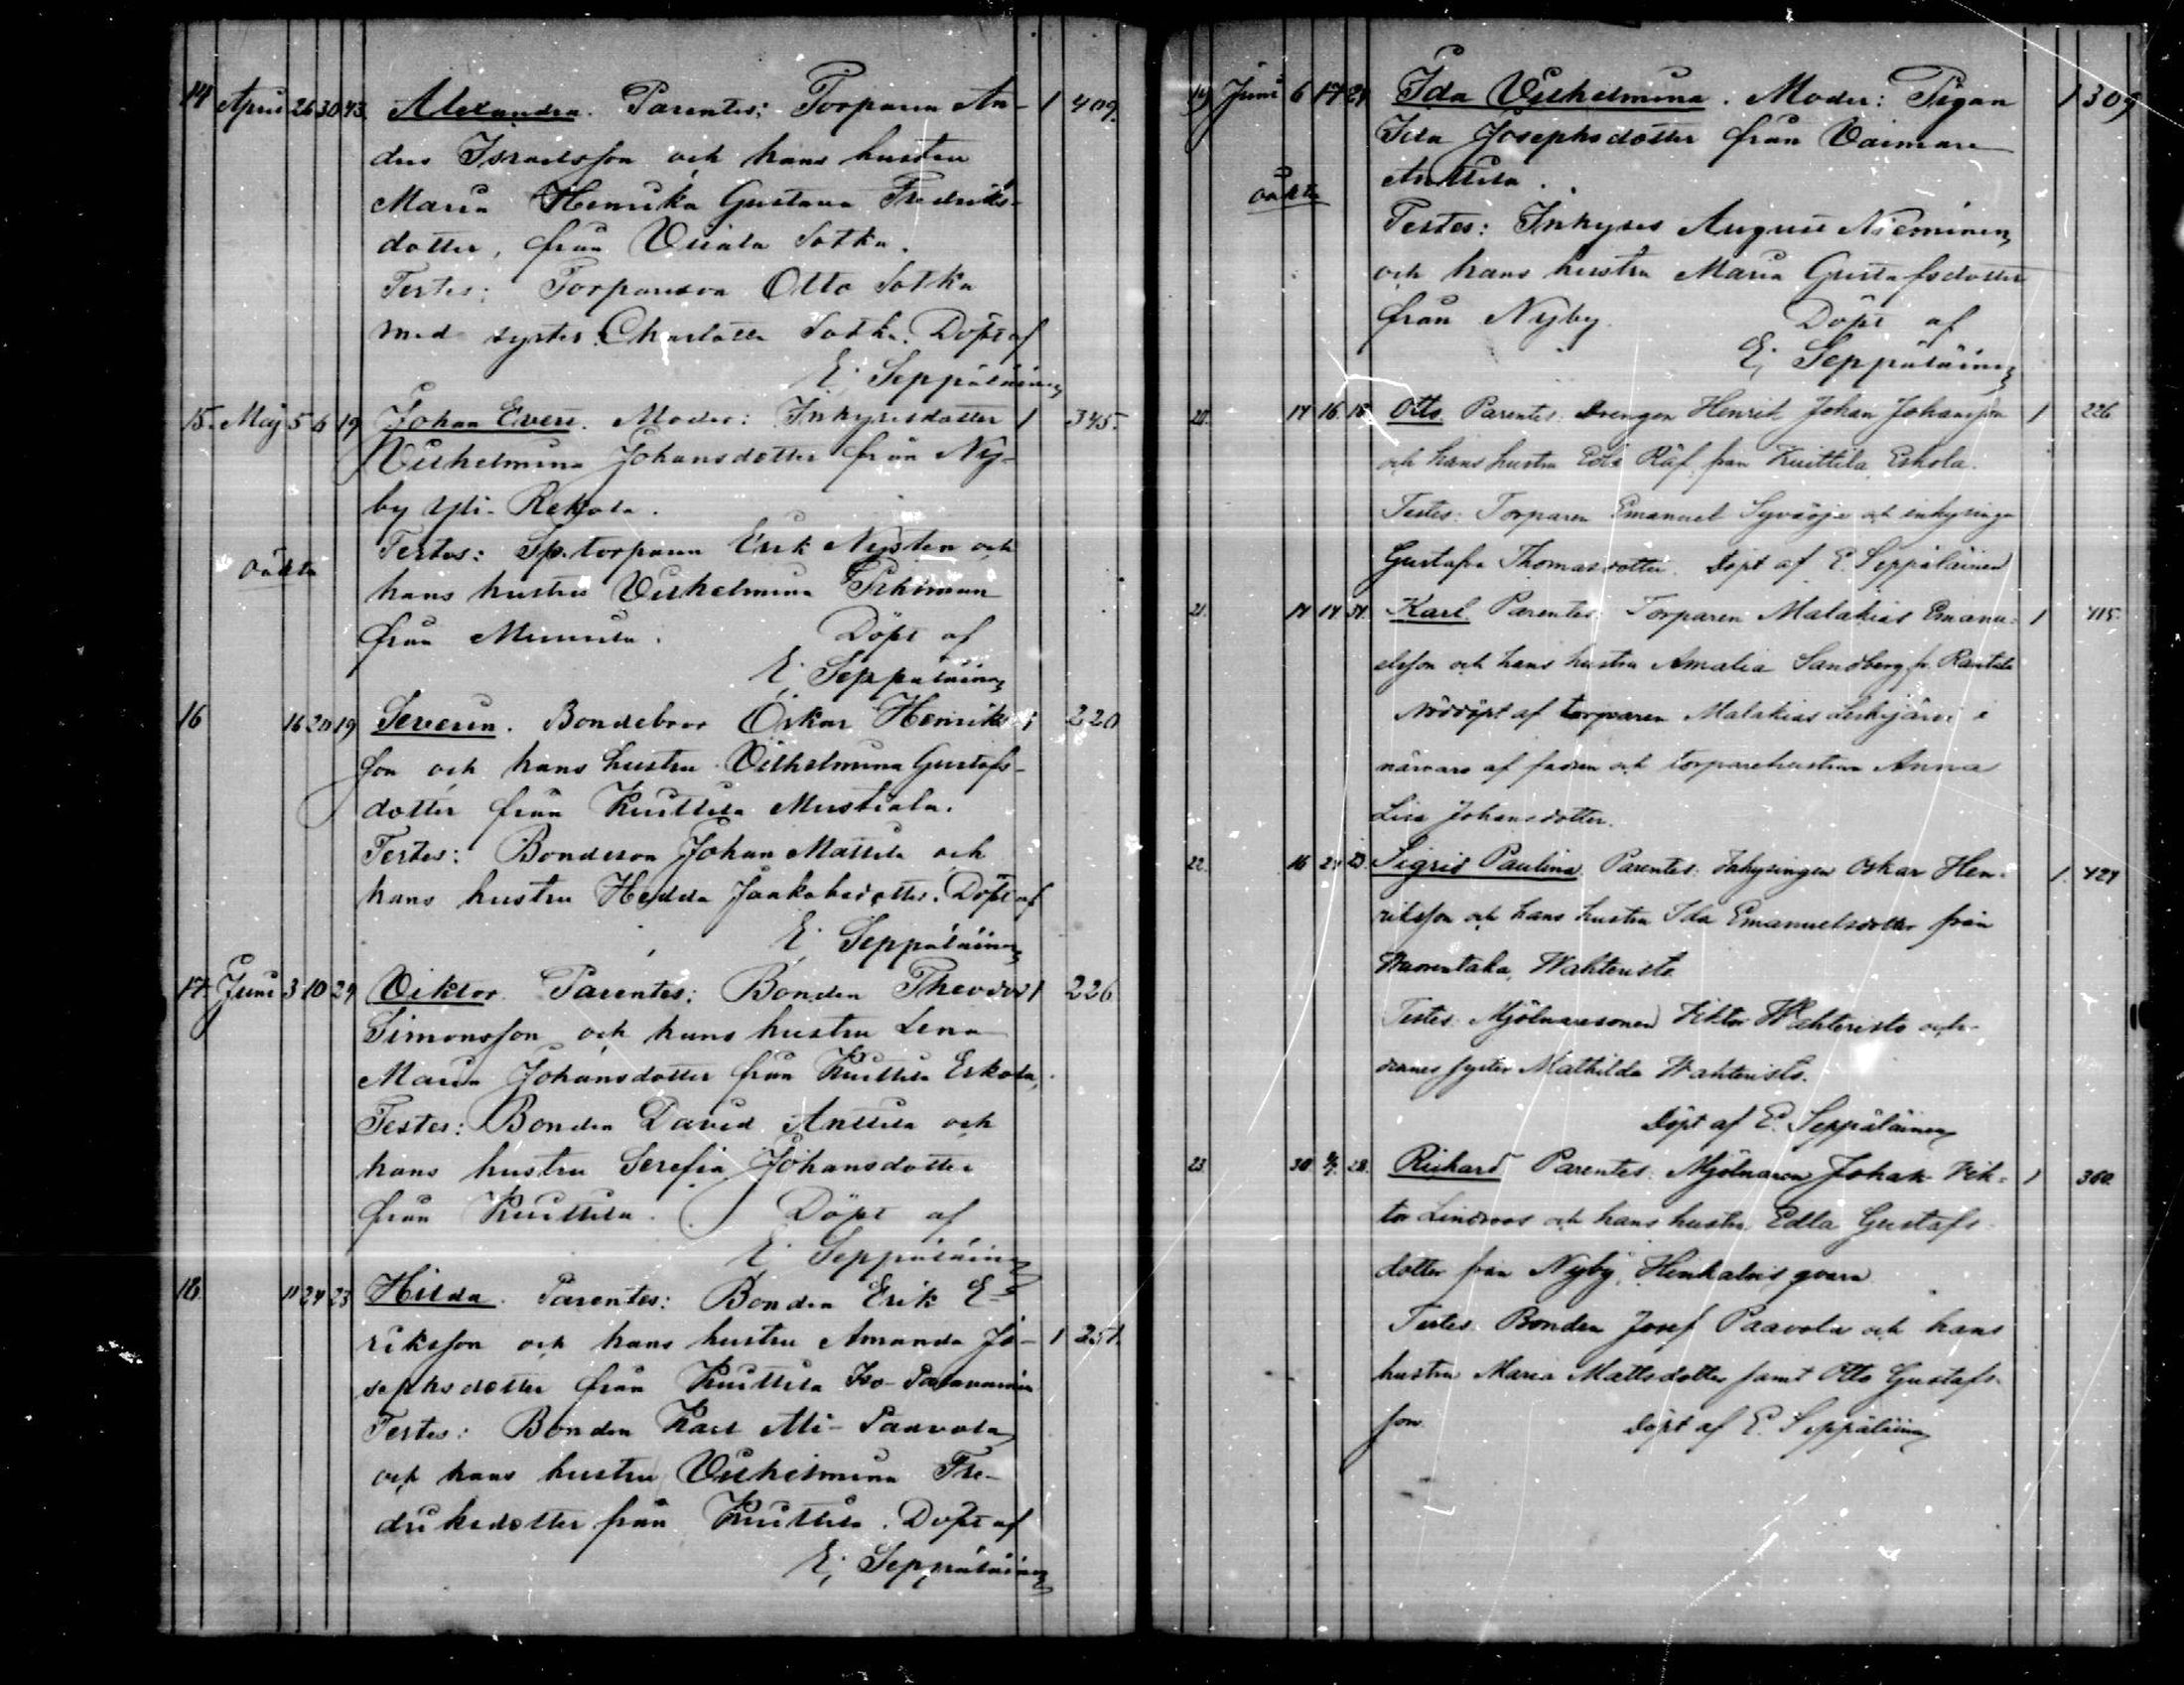 14 April 26 30 43. Alexandra. Parentes: Torparen An- 1 409.
ders Israelsson och hans hustru
Maria Henrika Gustava Fredriks-
dotter, från Uiala Sotka.
Testes: Torpareson Otto Sotka
med syster Charlotta Sotka. Döpt af
E. Seppäläinen
15. Maj 5 6 19 Johan Evert. Moder: Inhysesdotter 1 345.
Vilhelmina Johansdotter från Ny-
by Yli-Rekola.
Testes: Sp. torparen Erik Nysten och
oäkta
hans hustru Vilhelmina
från Döpt af
E. Seppäläinen
16 16 20 19 Severin. Bondebror Oskar Henriks- 1 220
son och hans hustru Vilhelmina Gustafs-
dotter från Kuittila Mustiala.
Testes: Bondeson Johan Mattila och
hans hustru Hedda Jaakobsdotter. Döpt af
E. Seppäläinen
17 Juni 3 10 29 Viktor. Parentes: Bonden Theodor 1 226
Simonsson och hans hustru Lena
Maria Johansdotter från Kuittila Eskola,
Testes: Bonden David Anttila och
hans hustru Serefia Johansdotter
från Kuittila. Döpt af
E. Seppäläinen
18. 11 24 23 Hilda. Parentes: Bonden Erik E-
riksson och hans hustru Amanda Jo- 1 251.
sephsdotter från Kuittila Iso-
Testes: Bonden Karl Ali-Paavola
och hans hustru Vilhelmina Fre-
driksdotter från Kuittila. Döpt af
E. Seppäläinen
19 Juni 6 17 21 Ida Vilhelmina. Moder: Pigan 1 309
Ida Josephsdotter från Vaimare
Anttila.
oäkta
Testes: Inhyses August Nieminen
och hans hustru Maria Gustafsdotter
från Nyby. Döpt af
E. Seppäläinen
20. 14 16 18 Otto. Parentes: Drengen Henrik Johan Johansson 1 226
och hans hustru Edla Räf från Kuittila Eskola.
Testes: Torparen Emanuel Syväoja och inhysinge
Gustafva Thomasdotter. Döpt af E. Seppäläinen
21. 14 14 34. Karl. Parentes: Torparen Malakias Emanu- 1 415.
elsson och hans hustru Amalia Sandberg fr. Rantala
Nöddöpt af torparen Malakias Leskijärvi i
närvaro af fadren och torparehustrun Anna
Lisa Johansdotter.
22. 16 24 23. Sigrid Paulina. Parentes: Inhysingen Oskar Hen- 1. 424
riksson och hans hustru Ida Emanuelsdotter från
Wuorentaka, Wahteristo.
Testes: Mjölnaresonen Viktor Wahteristo och
dennes syster Mathilda Wahteristo.
Döpt af E. Seppäläinen
23. 30. 28. Richard Parentes: Mjölnaren Johan Vik- 1 360.
tor Lindroos och hans hustru Edla Gustafs-
dotter från Nyby, qvarn
Testes: Bonden Josef Paavola och hans
hustru Maria Mattsdotter samt Otto Gustafs-
son. Döpt af E. Seppäläinen